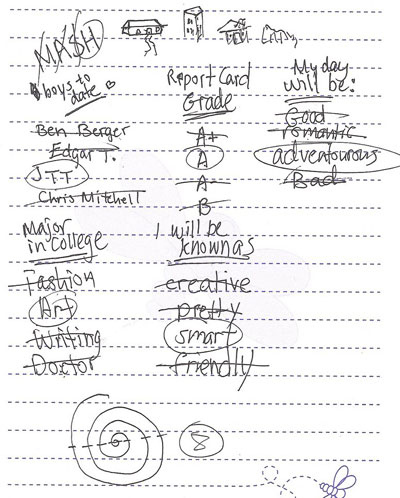 MASH
boys to
date
Report Card
Grade
My day
will be:
Ben Berger
Edgar T.
J.T.T.
Chris Mitchell
A+
A
A-
B
Good
romantic
adventourous
Bad
Major
in college
I will be
known as
Fashion
Art
Writing
Doctor
creative
pretty
smart
friendly
8